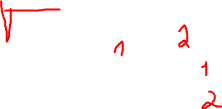 √
1 2
1
2